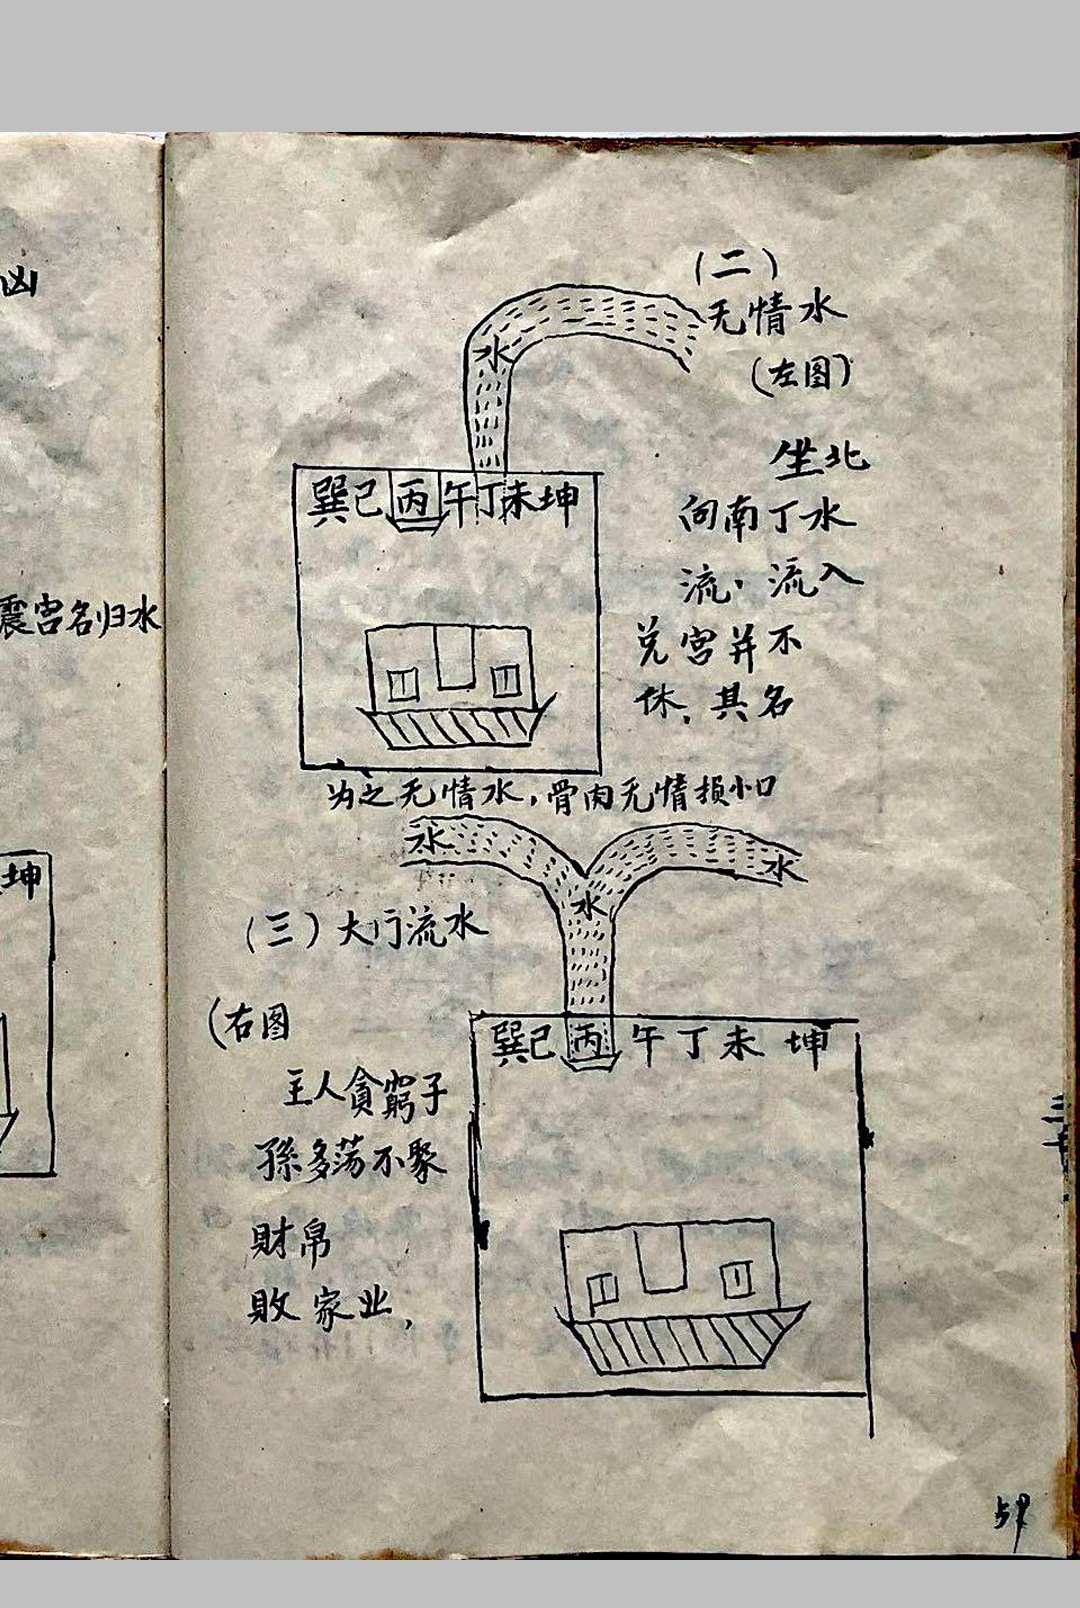 凶
震宫名归水
坤
(二)
无情水
(左图)
水
坐北
向南丁水
流，流入
兑宫并不
休，其名
巽己丙午丁未坤
为之无情水，骨肉无情损小口
水
水
水
(三)大门流水
(右图
巽己丙午丁未坤
主人貪窮子
孫多荡不聚
財帛
敗家业，